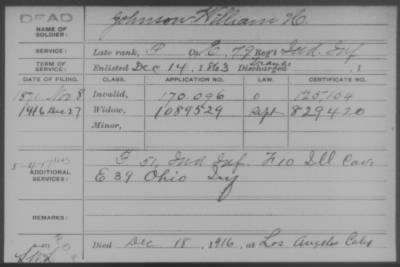 DEAD
NAME OF SOLDIER: Johnson William H.
SERVICE: Late rank, P Co. E, 79 Reg't Ind Inf
TERM OF SERVICE: Enlisted Dec 14, 1863 Discharged , 1
DATE OF FILING. CLASS. APPLICATION NO. LAW. CERTIFICATE NO.
1871 Nov 8 Invalid, 170.096 125104
1916 Dec 27 Widow, 1089529 Sept 829420
Minor,
ADDITIONAL SERVICES: F 51, Ind Inf. F 10 Ill Cav.
E 39 Ohio Inf
REMARKS:
Died Dec 18, 1916, at Los Angeles Calif